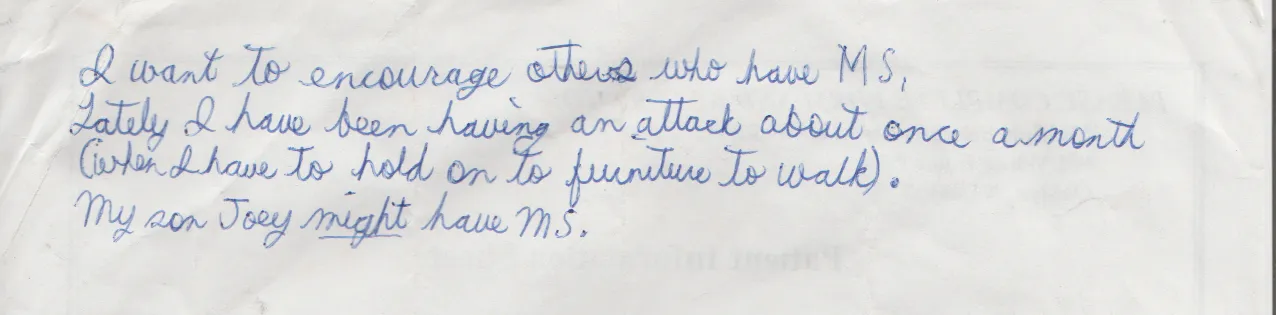 I want to encourage others who have MS,
Lately I have been having an attack about once a month
(when I have to hold on to furniture to walk).
My son Joey might have MS.